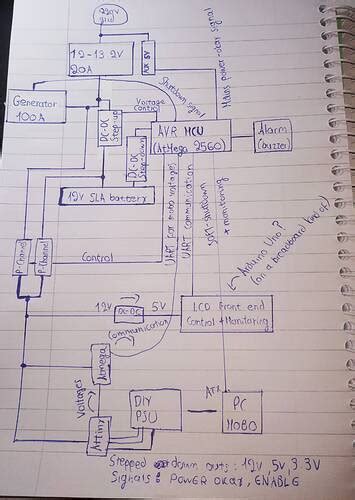 220V
grid
12-13.2V
20A
AUX 5V
Mains power-okay signal
Shutdown signal
Generator
100A
DC-DC
Step-up
Voltage
Control
DC-DC
Step-down
AVR MCU
(AtMega 2560)
Alarm
(buzzer)
12V SLA battery
P-Channel
P-Channel
Control
UART for mobo voltages
UART communication
Soft-shutdown
+ monitoring
Arduino Uno?
(on a breadboard kind of)
12V
DC-DC
5V
LCD Front end
Control + Monitoring
Communication
Atmega
Voltages
Attiny
DIY
PSU
ATX
PC
MOBO
Stepped down outs: 12V, 5V, 3.3V
Signals: POWER okay, ENABLE